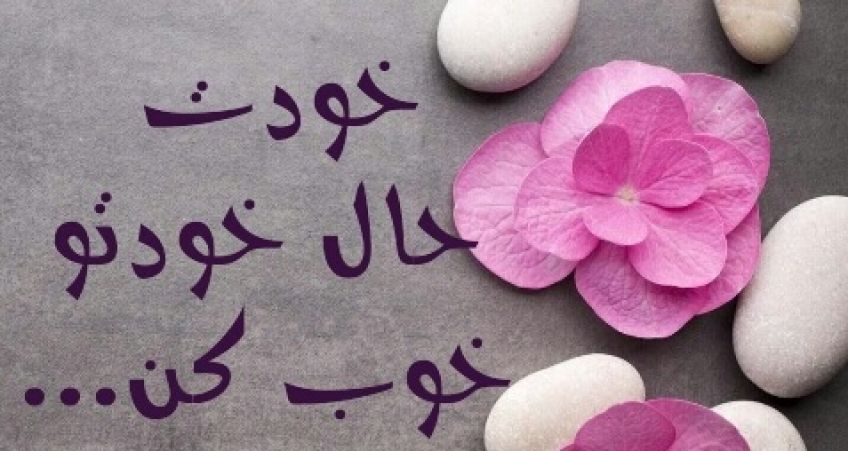 خودت
حال خودتو
خوب کن...